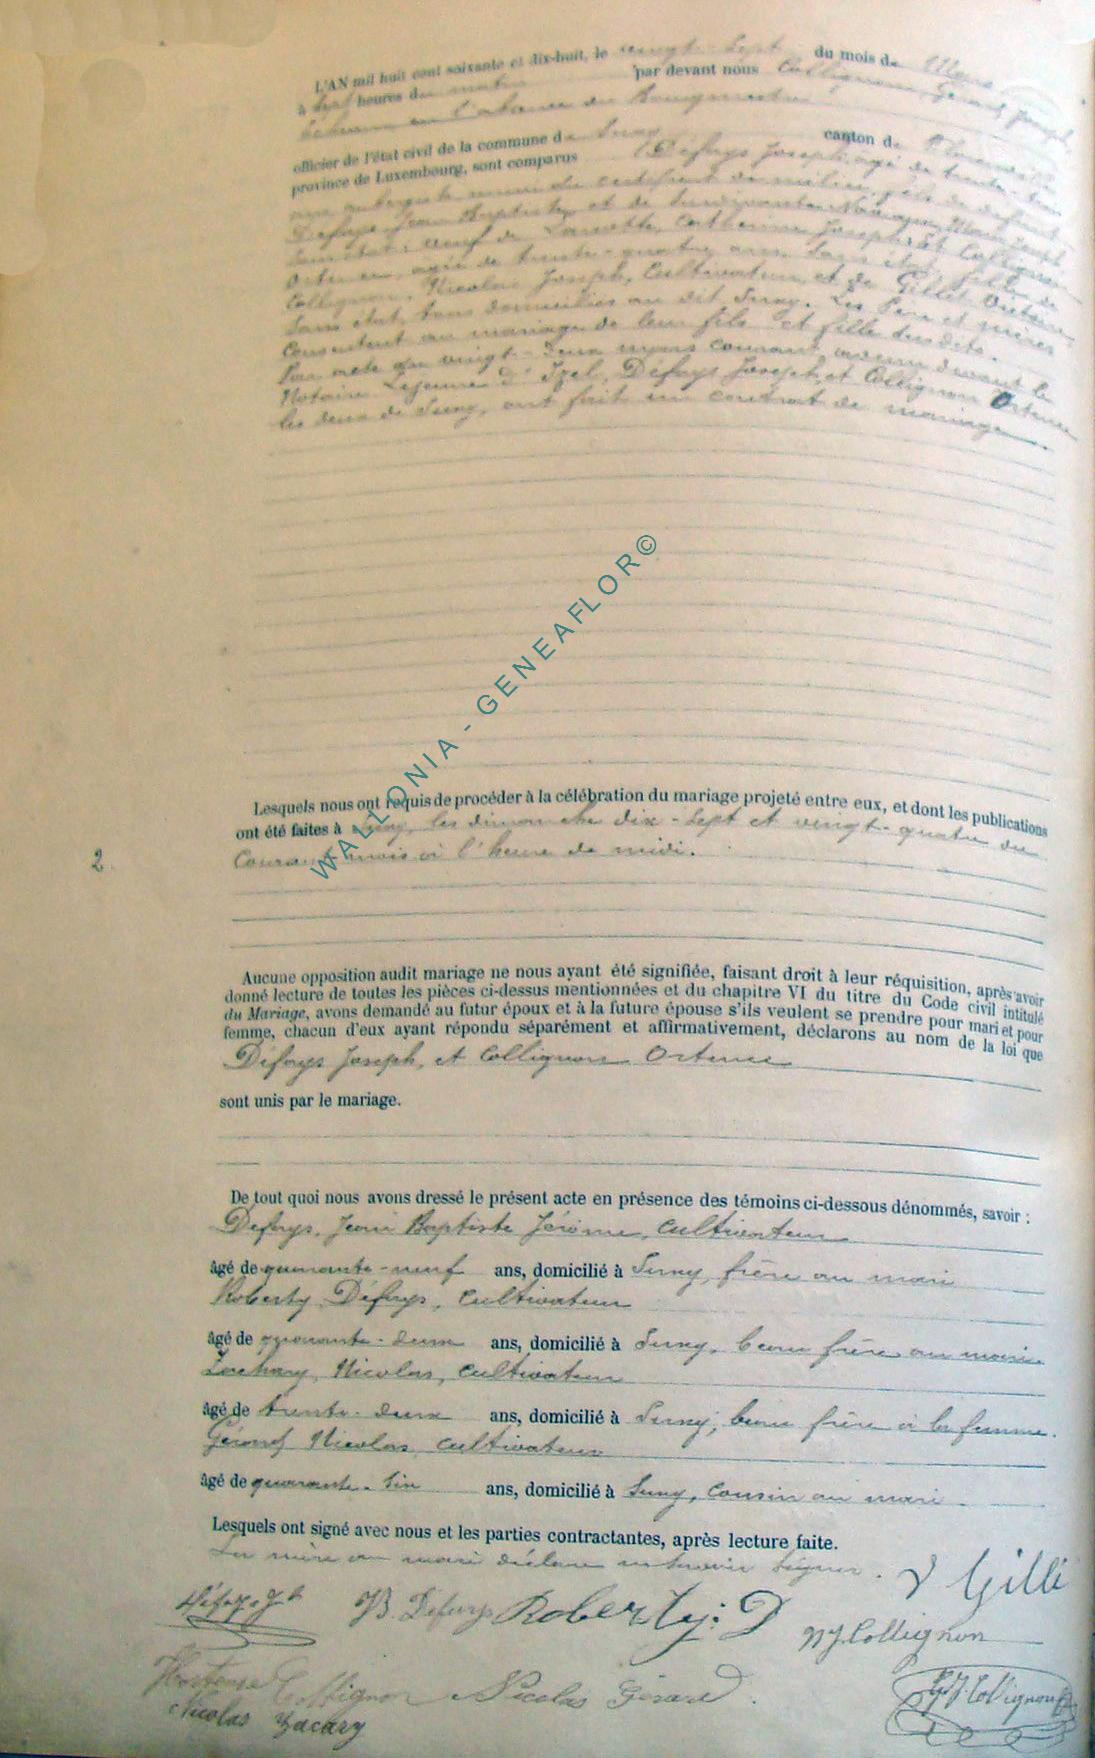 L'AN mil huit cent soixante et dix-huit, le vingt-sept du mois de Mars
à sept heures du matin par devant nous Collignon, Gérard Joseph,
Echevin en l'absence du Bourgmestre
officier de l'état civil de la commune de Suxy canton de
province de Luxembourg, sont comparus Défays Joseph, agé de trente-
ans, muni du certificat de milice, fils de défunt
Defays Jean Baptiste, et de Marie Joseph,
Sans état, veuf de Catherine Joseph, Et Collignon
Ortence, agée de trente-quatre ans, Sans état, fille de
Collignon, Nicolas Joseph, Cultivateur, et de Gillet Victoire,
Sans état, tous domiciliés au dit Suxy. Les Père et mères
Consentent au mariage de leur fils et fille susdits.
Par acte du vingt-deux mars courant avenu devant le
Notaire Lejeune d'Izel, Défays Joseph, et Collignon Ortence
les deux de Suxy, ont fait un contrat de mariage.
Lesquels nous ont requis de procéder à la célébration du mariage projeté entre eux, et dont les publications
ont été faites à Suxy, les dimanche dix-sept et vingt-quatre du
Courant mois à l'heure de midi.
2
Aucune opposition audit mariage ne nous ayant été signifiée, faisant droit à leur réquisition, après avoir
donné lecture de toutes les pièces ci-dessus mentionnées et du chapitre VI du titre du Code civil intitulé
du Mariage, avons demandé au futur époux et à la future épouse s'ils veulent se prendre pour mari et pour
femme, chacun d'eux ayant répondu séparément et affirmativement, déclarons au nom de la loi que
Défays Joseph, et Collignon Ortence
sont unis par le mariage.
De tout quoi nous avons dressé le présent acte en présence des témoins ci-dessous dénommés, savoir :
Defays, Jean Baptiste Jérôme, cultivateur
âgé de quarante-neuf ans, domicilié à Suxy, frère au mari
Roberty Défays, cultivateur
âgé de quarante-deux ans, domicilié à Suxy, beau frère au mari
Zachary, Nicolas, cultivateur
âgé de trente-deux ans, domicilié à Suxy, beau frère à la femme.
Gérard Nicolas, cultivateur
âgé de quarante-six ans, domicilié à Suxy, cousin au mari
Lesquels ont signé avec nous et les parties contractantes, après lecture faite.
La mère au mari déclare ne savoir signer.
V Gillé
Défays Jh JB. Defays Roberty: D
NJ. Collignon
Hortense Collignon Nicolas Gérard.
Nicolas Zacary
G. J. Collignon
WALLONIA - GENEAFLOR©